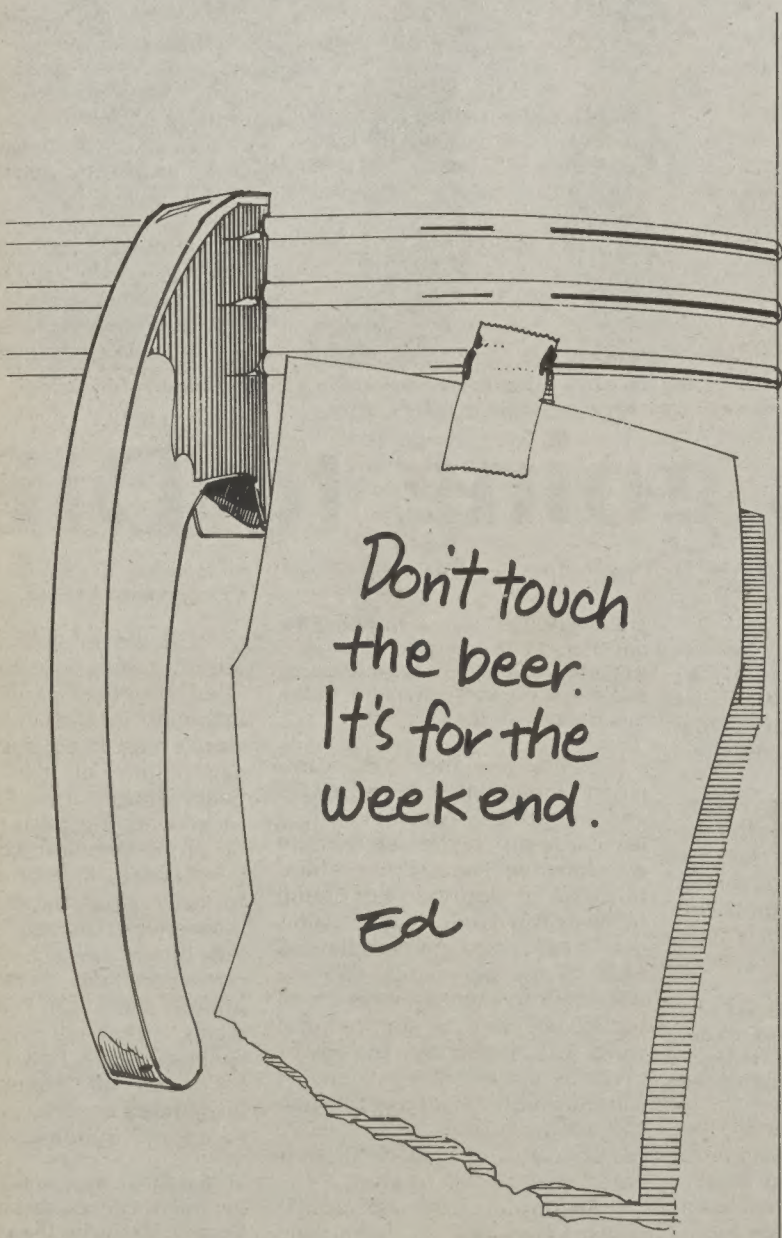 Don't touch
the beer.
It's for the
weekend.
Ed